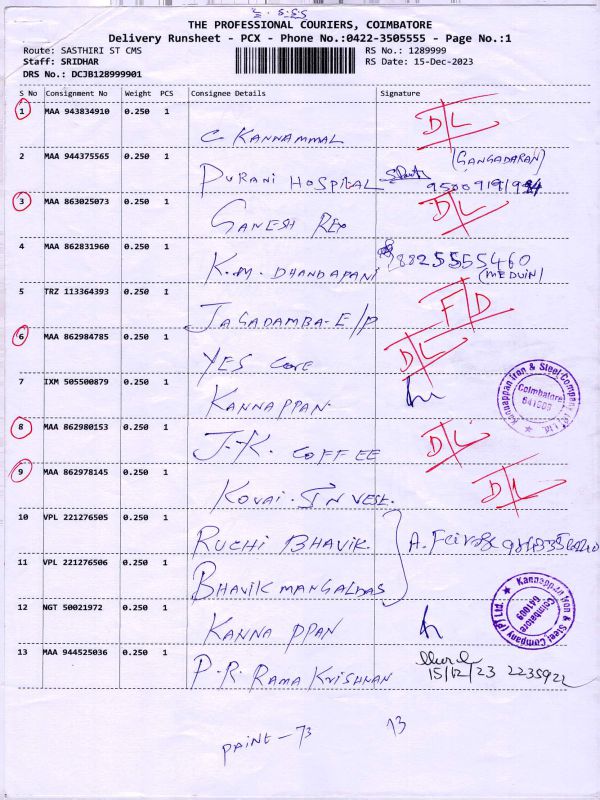 THE PROFESSIONAL COURIERS, COIMBATORE
Delivery Runsheet - PCX - Phone No.:0422-3505555 - Page No.:1
Route: SASTHIRI ST CMS RS No.: 1289999
Staff: SRIDHAR RS Date: 15-Dec-2023
DRS No.: DCJB128999901
S No Consignment No Weight PCS Consignee Details Signature
1 MAA 943834910 0.250 1 C KANNAMMAL D/L
2 MAA 944375565 0.250 1 PURANI HOSPITAL (GANGADARAN)
3 MAA 863025073 0.250 1 GANESH REX D/L
4 MAA 862831960 0.250 1 K.M. DHANDAPANI 8825555460
5 TRZ 113364393 0.250 1 JAGADAMBA-E/P F/D
6 MAA 862984785 0.250 1 YES CORE D/L
7 IXM 505500879 0.250 1 KANNAPPAN Kannappan Iron & Steel Company (P) Ltd. Coimbatore 641009
8 MAA 862980153 0.250 1 J.K. COFFEE D/L
9 MAA 862978145 0.250 1 KOVAI. INVEST. D/L
10 VPL 221276505 0.250 1 RUCHI BHAVIK A.
11 VPL 221276506 0.250 1 BHAVIK MANGALDAS
12 NGT 50021972 0.250 1 KANNAPPAN Kannappan Iron & Steel Company (P) Ltd. Coimbatore 641009
13 MAA 944525036 0.250 1 P.R. RAMA KRISHNAN 15/12/23 2235922
PAINT - 73 13